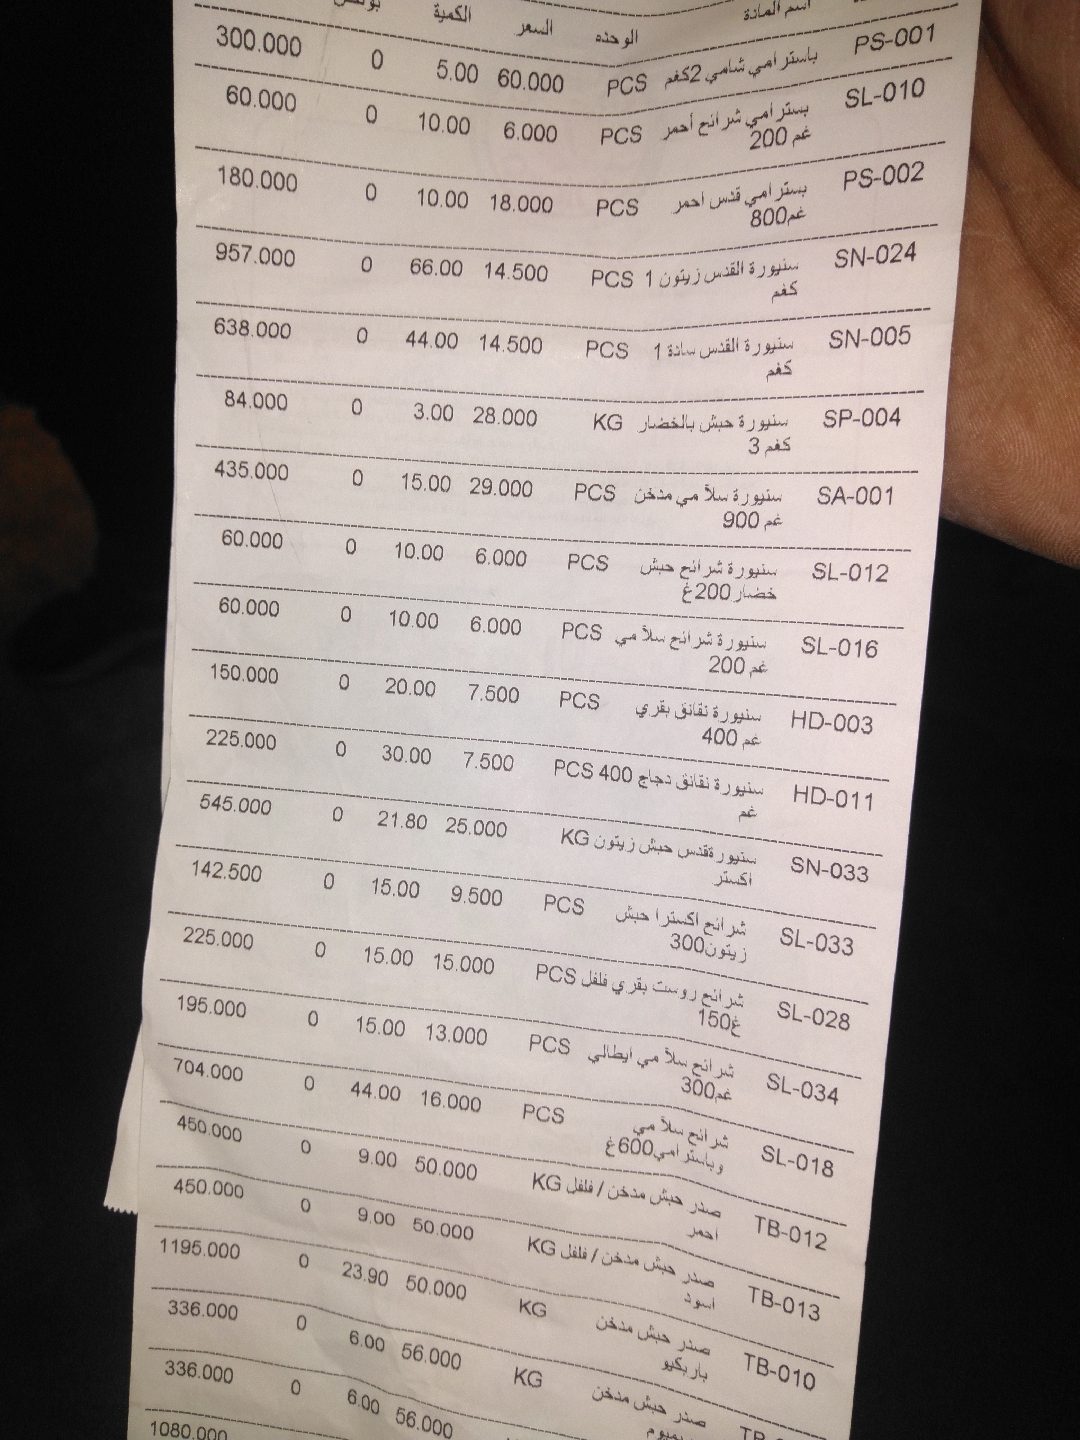 اسم المادة الوحده السعر الكمية بونص
PS-001 باسترامي شامي 2كغم PCS 60.000 5.00 0 300.000
SL-010 بسترامي شرائح أحمر PCS 6.000 10.00 0 60.000
200 غم
PS-002 بسترامي قدس احمر PCS 18.000 10.00 0 180.000
800غم
SN-024 سنيورة القدس زيتون 1 PCS 14.500 66.00 0 957.000
كغم
SN-005 سنيورة القدس سادة 1 PCS 14.500 44.00 0 638.000
كغم
SP-004 سنيورة حبش بالخضار KG 28.000 3.00 0 84.000
3 كغم
SA-001 سنيورة سلامي مدخن PCS 29.000 15.00 0 435.000
900 غم
SL-012 سنيورة شرائح حبش PCS 6.000 10.00 0 60.000
خضار200غ
SL-016 سنيورة شرائح سلامي PCS 6.000 10.00 0 60.000
200 غم
HD-003 سنيورة نقانق بقري PCS 7.500 20.00 0 150.000
400 غم
HD-011 سنيورة نقانق دجاج 400 PCS 7.500 30.00 0 225.000
غم
SN-033 سنيورةقدس حبش زيتون KG 25.000 21.80 0 545.000
اكستر
SL-033 شرائح اكسترا حبش PCS 9.500 15.00 0 142.500
زيتون300
SL-028 شرائح روست بقري فلفل PCS 15.000 15.00 0 225.000
150غ
SL-034 شرائح سلامي ايطالي PCS 13.000 15.00 0 195.000
300غم
SL-018 شرائح سلامي PCS 16.000 44.00 0 704.000
وباسترامي600غ
TB-012 صدر حبش مدخن / فلفل KG 50.000 9.00 0 450.000
احمر
TB-013 صدر حبش مدخن / فلفل KG 50.000 9.00 0 450.000
اسود
TB-010 صدر حبش مدخن KG 50.000 23.90 0 1195.000
باربكيو
صدر حبش مدخن KG 56.000 6.00 0 336.000
56.000 6.00 0 336.000
1080.000